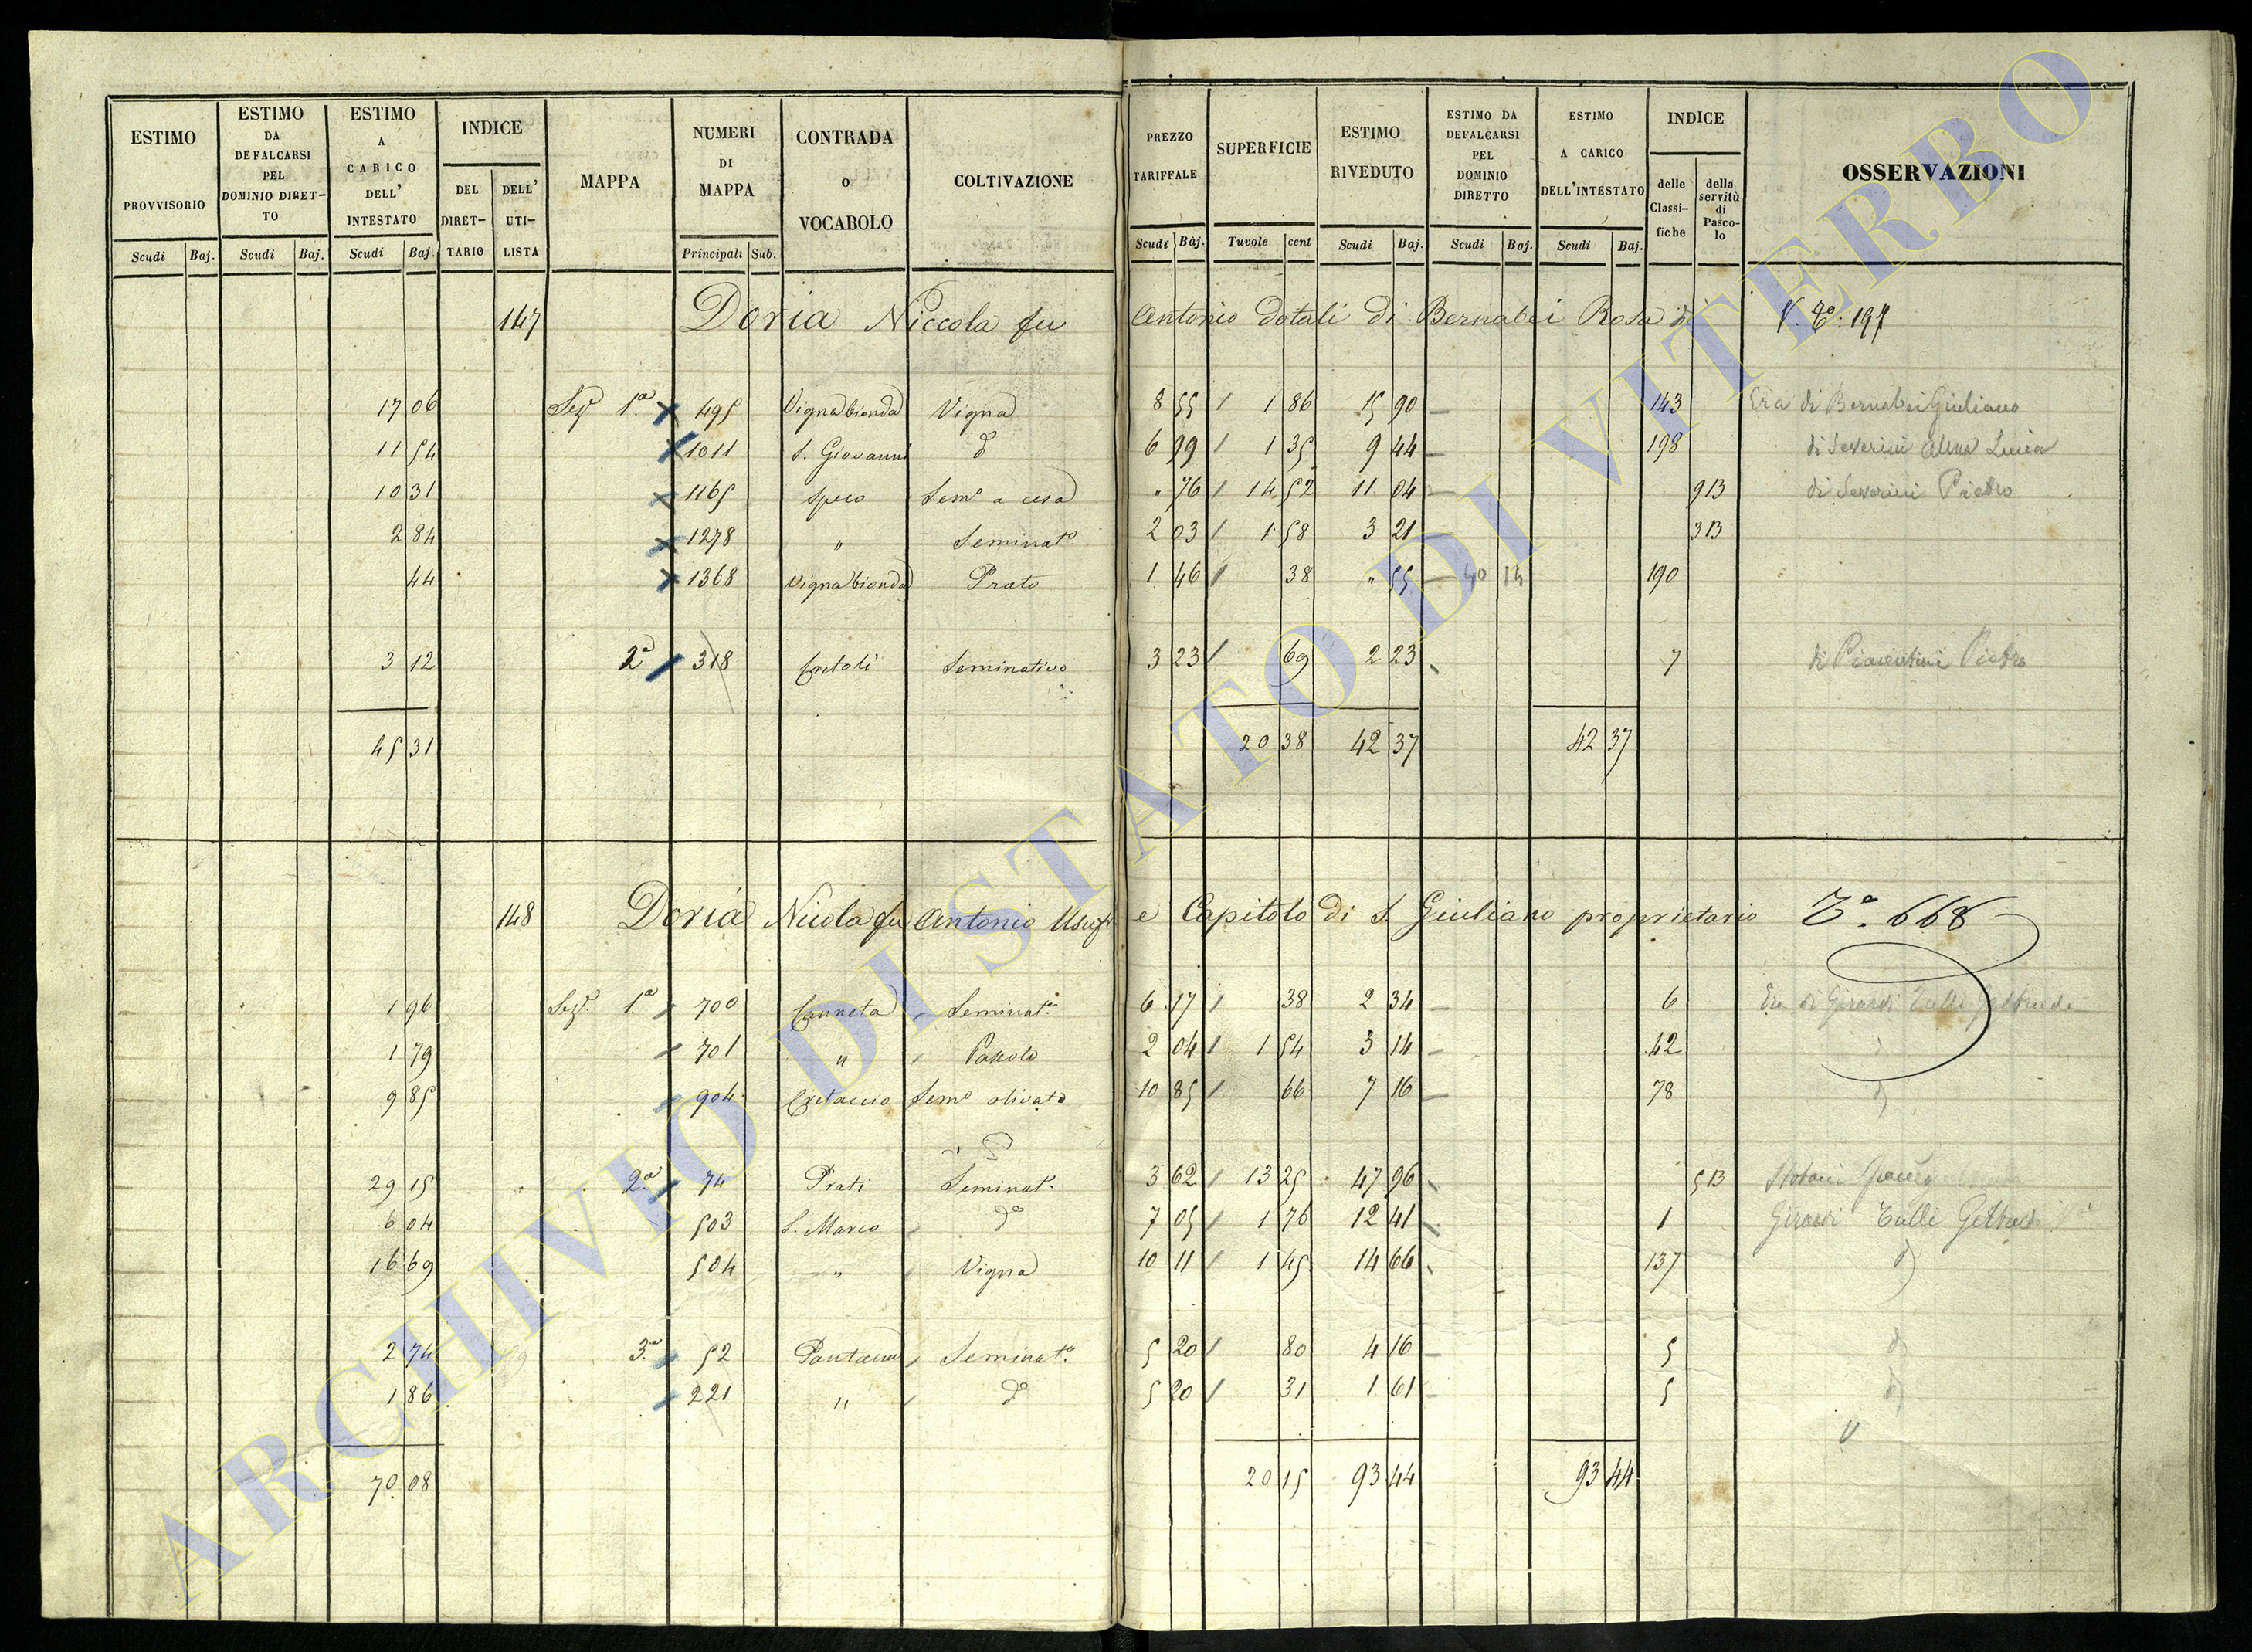 ESTIMO PROVVISORIO | ESTIMO DA DEFALCARSI PEL DOMINIO DIRETTO | ESTIMO A CARICO DELL' INTESTATO | INDICE DEL DIRETTARIO | DELL' UTILISTA | MAPPA | NUMERI DI MAPPA | CONTRADA O VOCABOLO | COLTIVAZIONE | PREZZO TARIFFALE | SUPERFICIE | ESTIMO RIVEDUTO | ESTIMO DA DEFALCARSI PEL DOMINIO DIRETTO | ESTIMO A CARICO DELL'INTESTATO | INDICE delle Classifiche | della servitù di Pascolo | OSSERVAZIONI
Scudi Baj. | Scudi Baj. | Scudi Baj. | Principali Sub. | Scudi Baj. | Tavole cent | Scudi Baj. | Scudi Baj. | Scudi Baj.
147 Doria Niccola fu Antonio dotali di Bernabei Rosa V. To. 197
17 06 Sez. 1a 495 Vigna bionda Vigna 8 55 1 86 15 90 143 Era di Bernabei Giuliano
11 54 1011 S. Giovanni d 6 99 1 35 9 44 198 di Severini Anna Lucia
10 31 1165 Speco Semo a cesa " 76 14 52 11 04 9 B di Severini Pietro
2 84 1278 " Seminato 2 03 1 58 3 21 3 B
44 1368 Vigna bionda Prato 1 46 38 " 55 40 14 190
3 12 2a 318 Cretoli Seminativo 3 23 69 2 23 7 di Piacentini Pietro
45 31 20 38 42 37 42 37
148 Doria Nicola fu Antonio Usufe e Capitolo di S. Giuliano proprietario To. 668
1 96 Sez. 1a 700 Canneta Seminato 6 17 38 2 34 6 Era di Girardi Tulli Geltrude
1 79 701 " Pascolo 2 04 1 54 3 14 42 d
9 85 904 Cretaccio Semo olivato 10 85 66 7 16 78 d
29 15 2a 74 Prati Seminato 3 62 13 25 47 96 5 B
6 04 503 S. Marco do 7 05 1 76 12 41 1 Girardi Tulli Geltrude
16 69 504 " Vigna 10 11 1 45 14 66 137 d
2 74 3a 52 Pantano Seminato 5 20 80 4 16 5 d
1 86 221 " do 5 20 31 1 61 5 d
70 08 20 15 93 44 93 44
ARCHIVIO DI STATO DI VITERBO